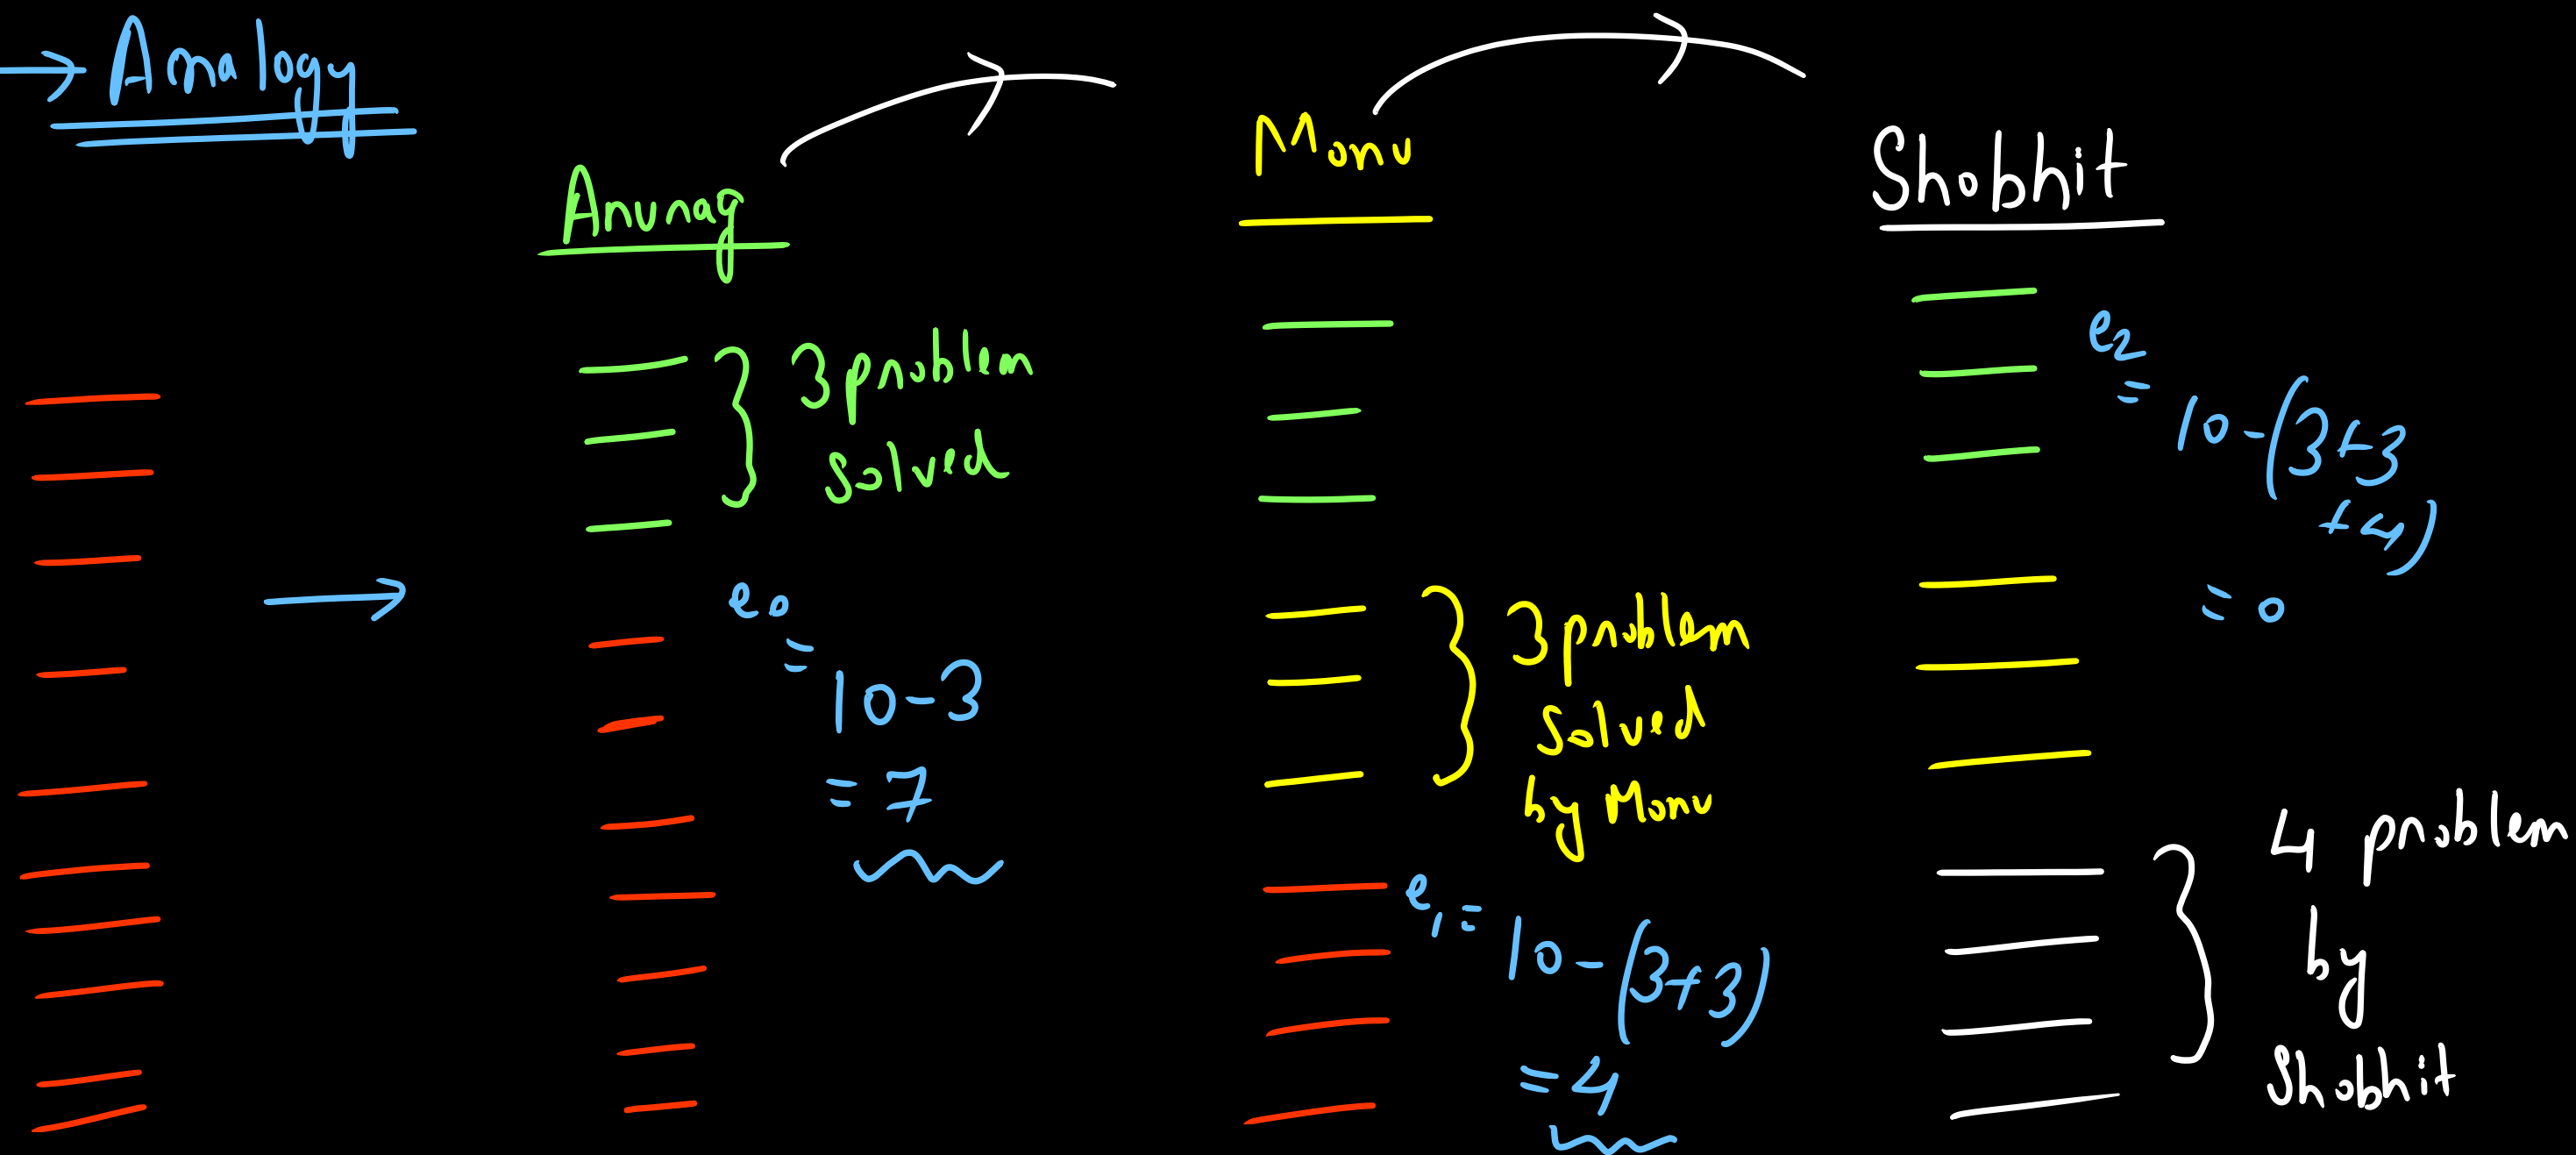 → Analogy
Anurag
3 problem
solved
e0
=
10-3
= 7
Monu
3 problem
solved
by Monu
e1 =
10-(3+3)
=4
Shobhit
e2
=
10-(3+3
+4)
= 0
4 problem
by
Shobhit